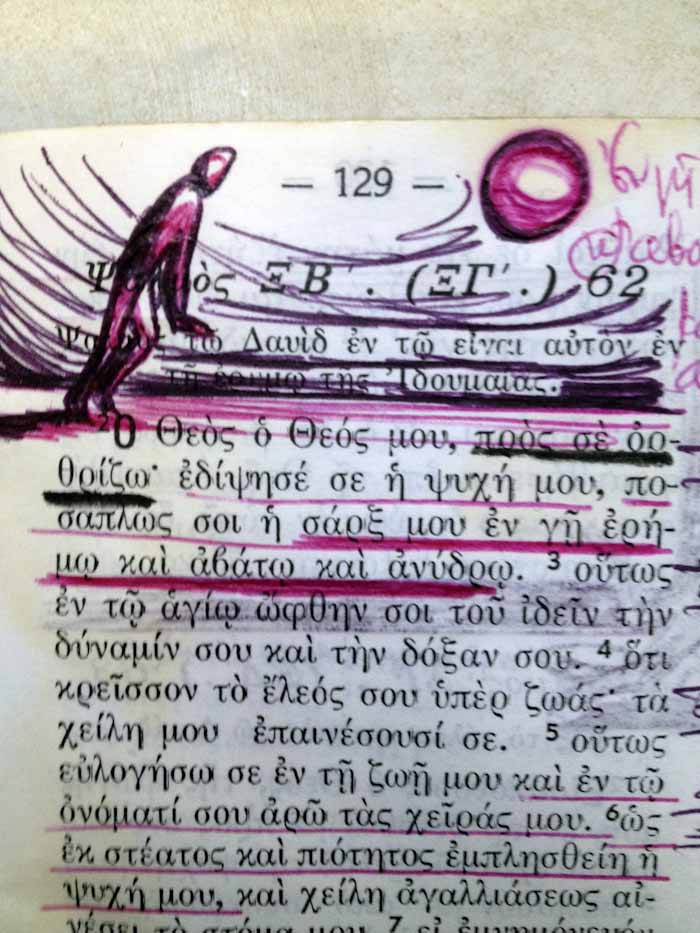 — 129 —
ΞΒ΄. (ΞΓ΄.) 62
τῷ Δαυῒδ ἐν τῷ εἶναι αὐτὸν ἐν
τῇ ἐρήμῳ τῆς Ἰδουμαίας.
²Ὁ Θεὸς ὁ Θεός μου, πρὸς σὲ ὀρ-
θρίζω· ἐδίψησέ σε ἡ ψυχή μου, πο-
σαπλῶς σοι ἡ σάρξ μου ἐν γῇ ἐρή-
μῳ καὶ ἀβάτῳ καὶ ἀνύδρῳ. ³ οὕτως
ἐν τῷ ἁγίῳ ὤφθην σοι τοῦ ἰδεῖν τὴν
δύναμίν σου καὶ τὴν δόξαν σου. ⁴ ὅτι
κρεῖσσον τὸ ἔλεός σου ὑπὲρ ζωάς· τὰ
χείλη μου ἐπαινέσουσί σε. ⁵ οὕτως
εὐλογήσω σε ἐν τῇ ζωῇ μου καὶ ἐν τῷ
ὀνόματί σου ἀρῶ τὰς χεῖράς μου. ⁶ὡς
ἐκ στέατος καὶ πιότητος ἐμπλησθείη ἡ
ψυχή μου, καὶ χείλη ἀγαλλιάσεως αἰ-
νέσει τὸ στόμα μου. ⁷ εἰ ἐμνημόνευόν